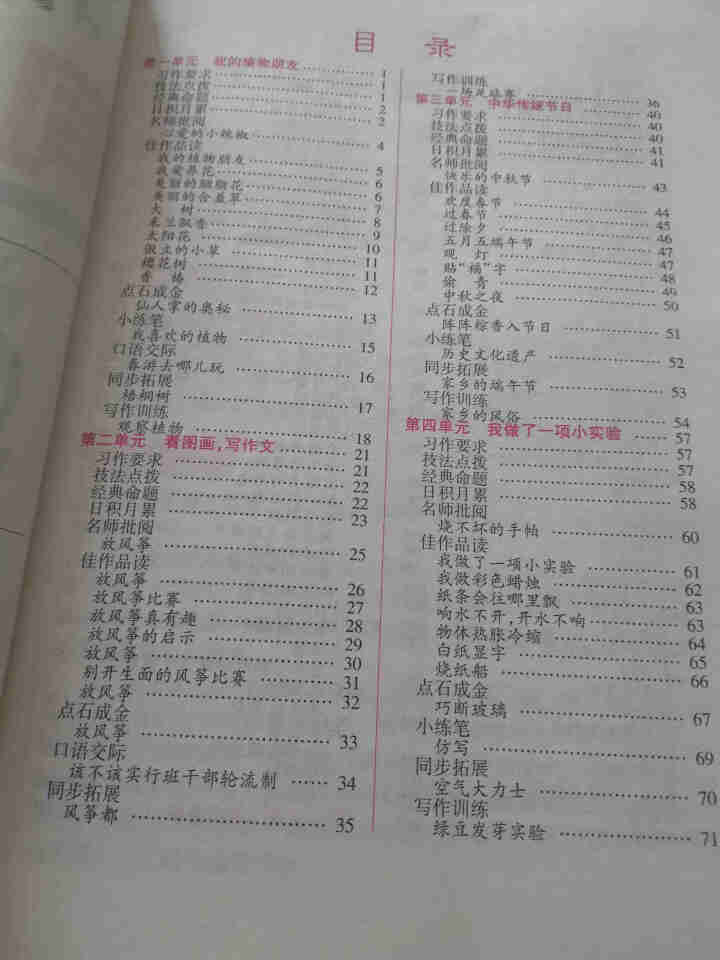 目 录
第一单元 我的植物朋友 …… 1
习作要求 …… 1
技法点拨 …… 1
经典命题 …… 2
日积月累 …… 2
名师批阅
心爱的小辣椒 …… 4
佳作品读
我的植物朋友 …… 5
我爱养花 …… 6
美丽的胭脂花 …… 6
美丽的含羞草 …… 7
大 树 …… 8
米兰飘香 …… 9
太阳花 …… 10
傲立的小草 …… 11
樱花树 …… 11
香 椿 …… 12
点石成金
仙人掌的奥秘 …… 13
小练笔
我喜欢的植物 …… 15
口语交际
春游去哪儿玩 …… 16
同步拓展
梧桐树 …… 17
写作训练
观察植物 …… 18
第二单元 看图画,写作文 …… 21
习作要求 …… 21
技法点拨 …… 22
经典命题 …… 22
日积月累 …… 23
名师批阅
放风筝 …… 25
佳作品读
放风筝 …… 26
放风筝比赛 …… 27
放风筝真有趣 …… 28
放风筝的启示 …… 29
放风筝 …… 30
别开生面的风筝比赛 …… 31
放风筝 …… 32
点石成金
放风筝 …… 33
口语交际
该不该实行班干部轮流制 …… 34
同步拓展
风筝都 …… 35
写作训练
一场足球赛 …… 36
第三单元 中华传统节日 …… 40
习作要求 …… 40
技法点拨 …… 40
经典命题 …… 41
日积月累 …… 41
名师批阅
快乐的中秋节 …… 43
佳作品读
欢度春节 …… 44
过春节 …… 45
过除夕 …… 46
五月五端午节 …… 47
观 灯 …… 47
贴“福”字 …… 48
偷 青 …… 49
中秋之夜 …… 50
点石成金
阵阵粽香入节日 …… 51
小练笔
历史文化遗产 …… 52
同步拓展
家乡的端午节 …… 53
写作训练
家乡的风俗 …… 54
第四单元 我做了一项小实验 …… 57
习作要求 …… 57
技法点拨 …… 57
经典命题 …… 58
日积月累 …… 58
名师批阅
烧不坏的手帕 …… 60
佳作品读
我做了一项小实验 …… 61
我做彩色蜡烛 …… 62
纸条会往哪里飘 …… 63
响水不开,开水不响 …… 63
物体热胀冷缩 …… 64
白纸显字 …… 65
烧纸船 …… 66
点石成金
巧断玻璃 …… 67
小练笔
仿写 …… 69
同步拓展
空气大力士 …… 70
写作训练
绿豆发芽实验 …… 71